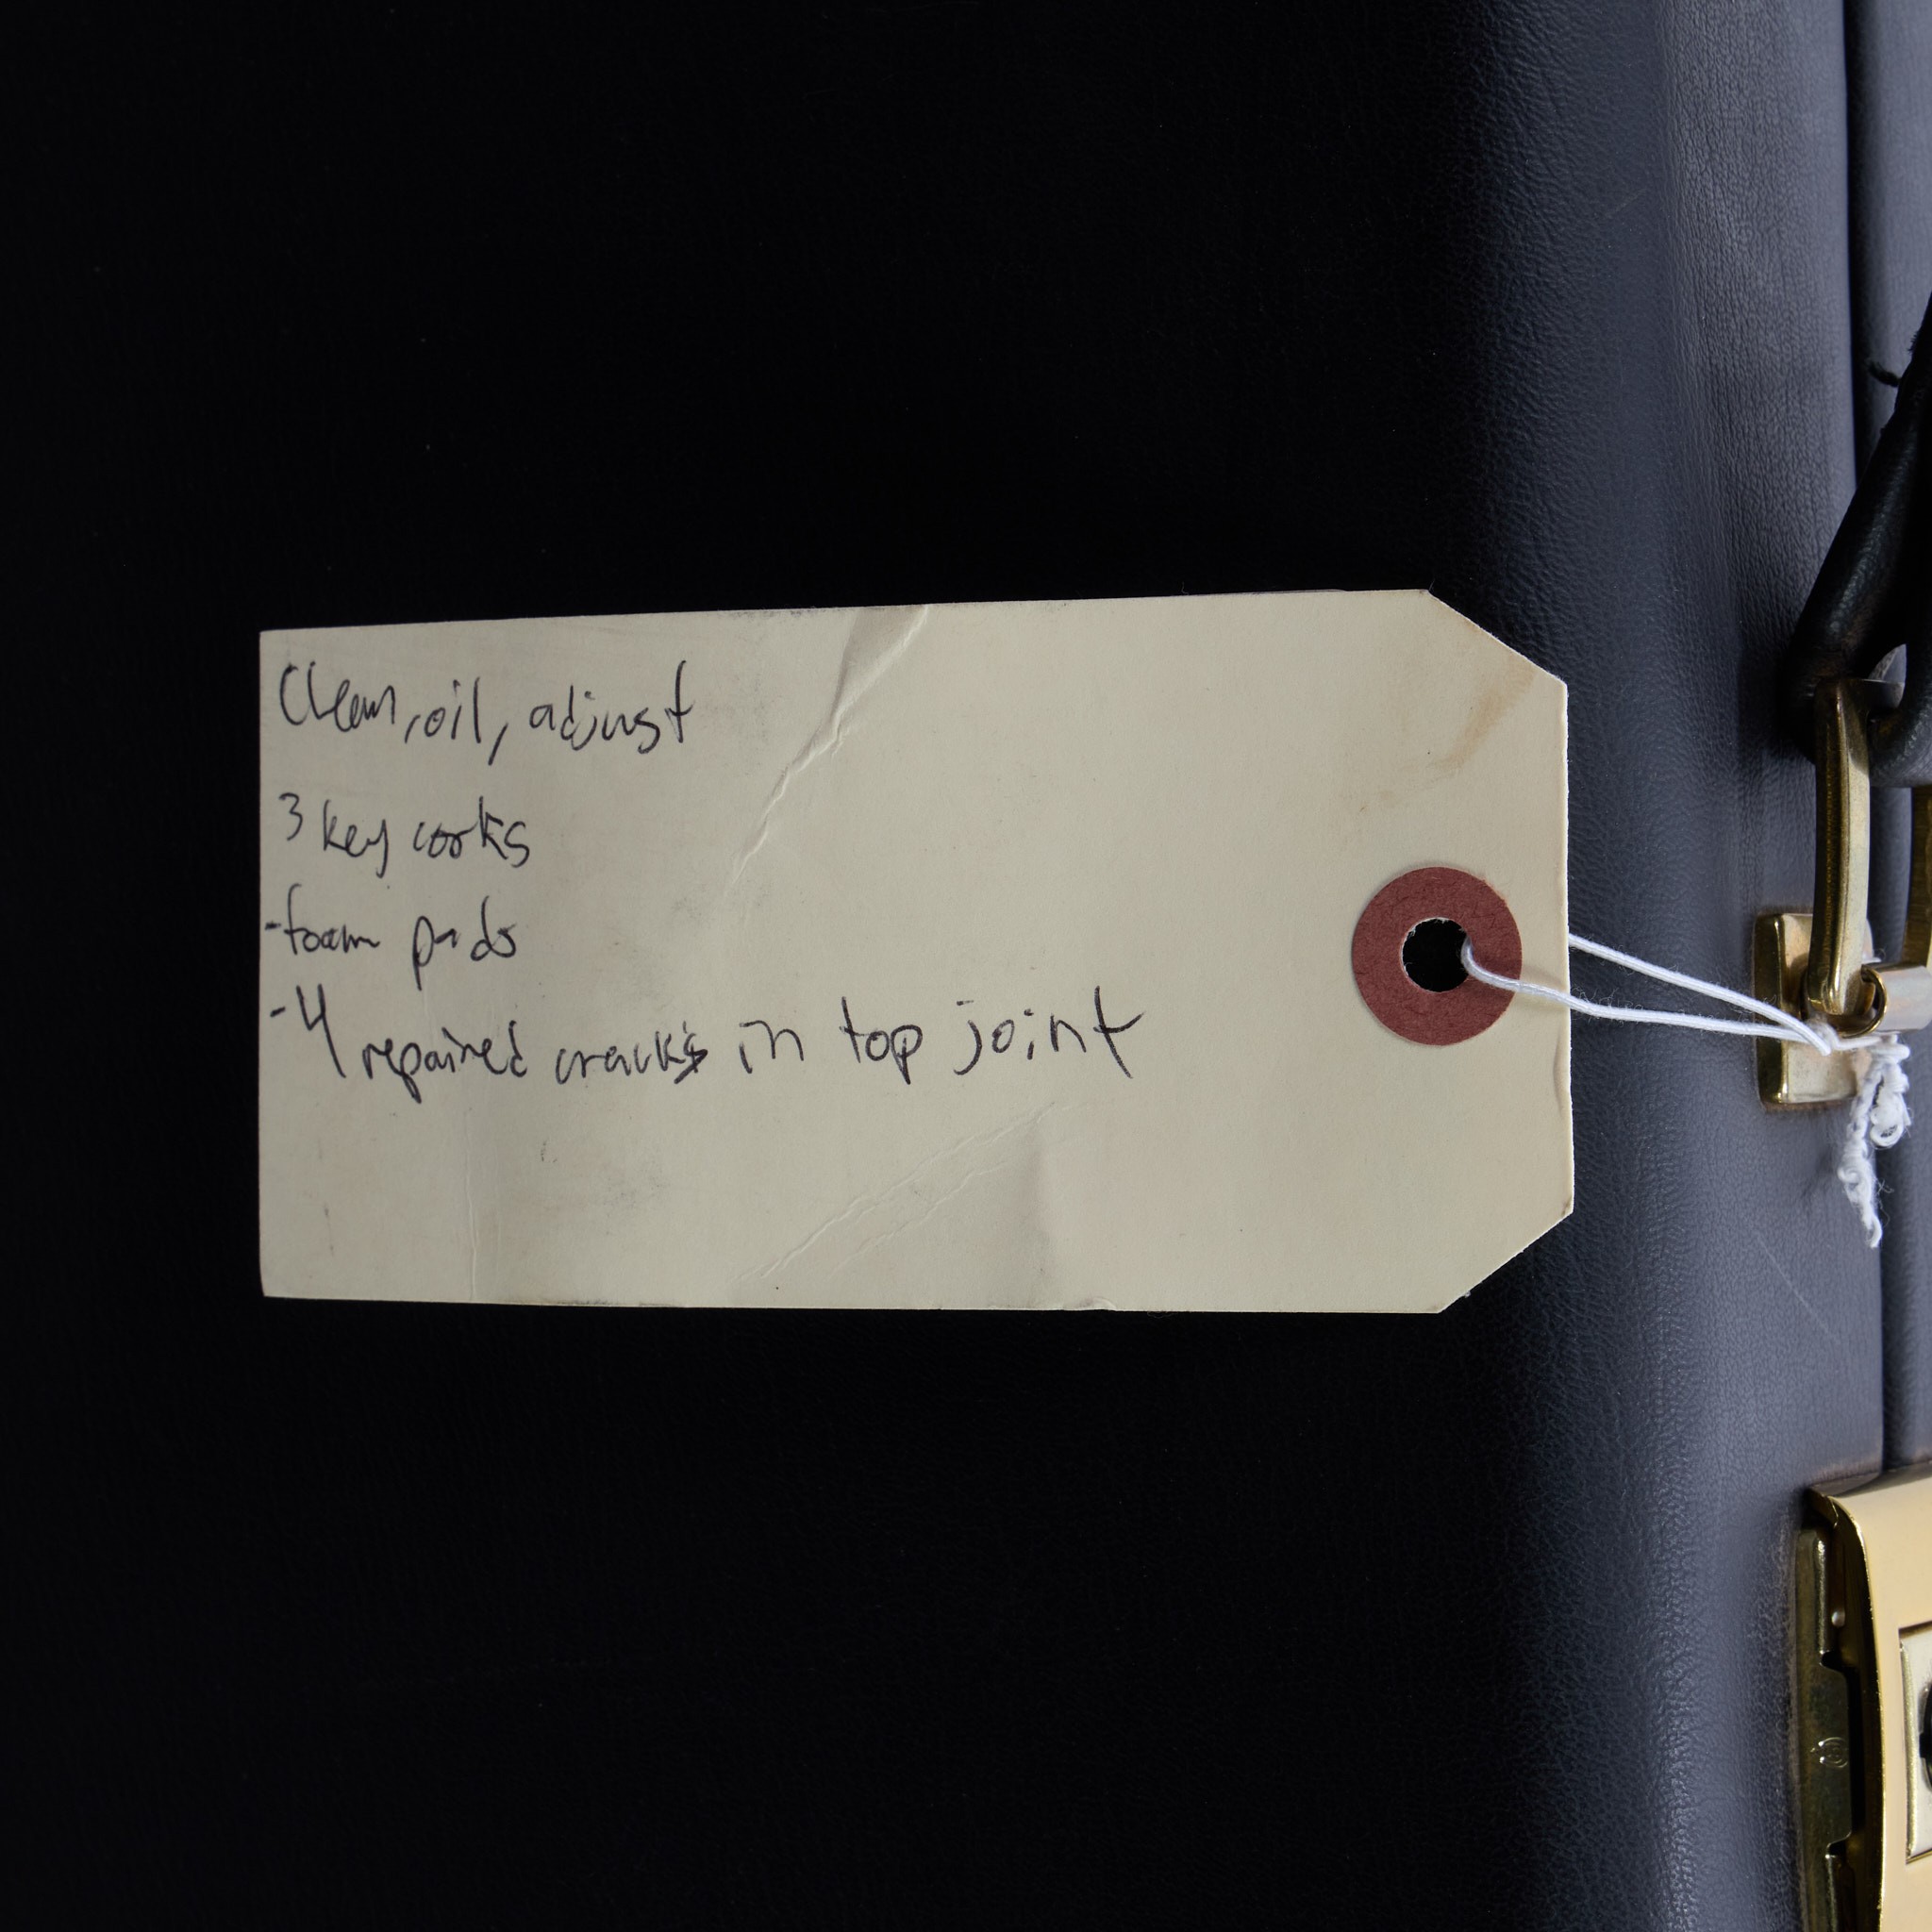 Clean, oil, adjust
3 key corks
-foam pads
-4 repaired cracks in top joint